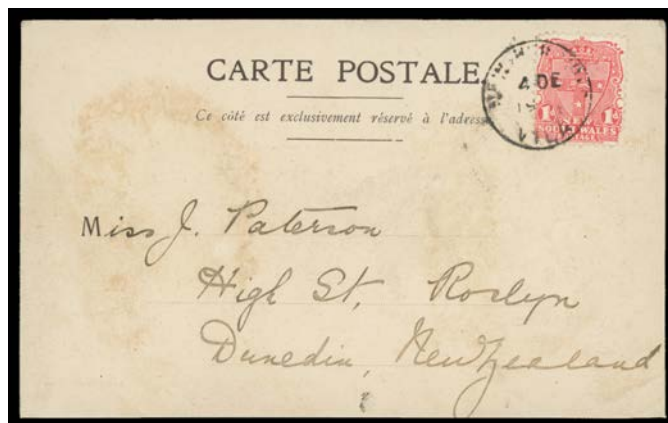 CARTE POSTALE
Ce côté est exclusivement réservé à l'adresse
4 DE
1d 1d
WALES
Miss J. Paterson
High St, Roslyn
Dunedin, New Zealand